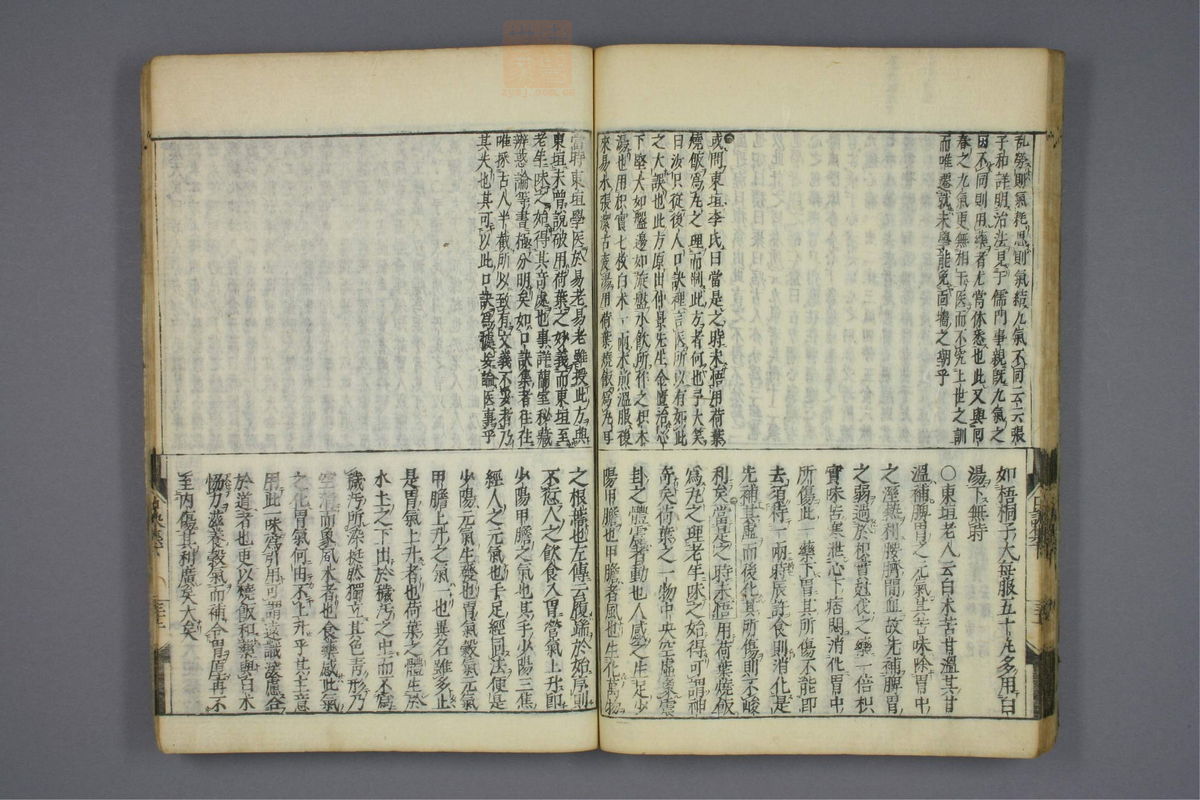 亂勞則氣耗思則氣結九氣不同云云張
子和詳明治法見于儒門事親既九氣之
因不同則用藥者尤當体悉也此又與同
春之九氣更無相干医而不究上世之訓
而唯遷就末學能免面墻之朝乎
或問東垣李氏曰當是之時未悟用荷葉
燒飯為丸之理而制此方者何也予大笑
曰汝只從後人口訣裡言医所以有如此
之大誤也此方原出仲景先生金匱治心
下堅大如盤邊如旋盤水飲所作之枳朮
湯也用枳實七枚白朮二兩水煎溫服後
來易水張潔古變湯用荷葉燒飯為丸耳
如梧桐子大每服五十丸多用白
湯下無時
〇東垣老人云白朮苦甘溫其甘
溫補脾胃之元氣其苦味除胃中
之溼熱利腰臍間血故先補脾胃
之弱過於枳實尅伐之藥一倍枳
實味苦寒泄心下痞悶消化胃中
所傷此一藥下胃其所傷不能即
去須待一兩時辰許食則消化是
先補其虛而後化其所傷則不峻
利矣當是之時未悟用荷葉燒飯
為丸之理老年味之始得可謂神
奇矣荷葉之一物中央空虛象震
卦之體震者動也人感之生足少
陽甲膽也甲膽者風也生化萬物
當聯東垣學医於易老易老雖授此方與
東垣未曾說破用荷葉之妙義而東垣至
老年味之始得其奇處也事詳蘭室秘藏
辨惑論等書極分明矣如口訣集者往往
唯採古人半截所以致有文義不要者乃
其夫也其可以此口訣為據妄論医事乎
之根蒂也左傳云履端於始序則
不愆人之飲食入胃營氣上升即
少陽甲膽之氣也其手少陽三焦
經人之元氣也手足經同法便是
少陽元氣生發也胃氣穀氣元氣
甲膽上升之氣一也異名雖多止
是胃氣上升者也荷葉之體生於
水土之下出於穢汚之中而不為
穢汚所染挺然獨立其色青形乃
空清而象風木者也食藥感此氣
之化胃氣何由不上升乎其主意
用此一味為引用可謂遠識深慮合
於道者也更以燒飯和藥與白朮
協力滋養穀氣而補令胃厚再不
至內傷其利廣矣大矣